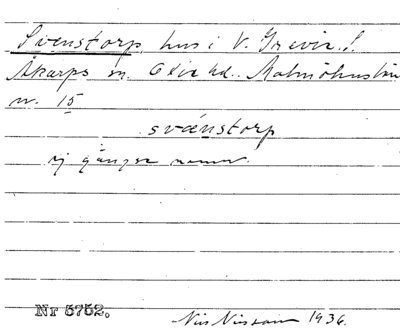 Svenstorp, hus i V. Grevie. S.
Åkarps sn. Oxie hd. Malmöhus län
nr. 15
svænstorp
ej gängse namn.
Nr 5752.
Nils Nilsson 1936.